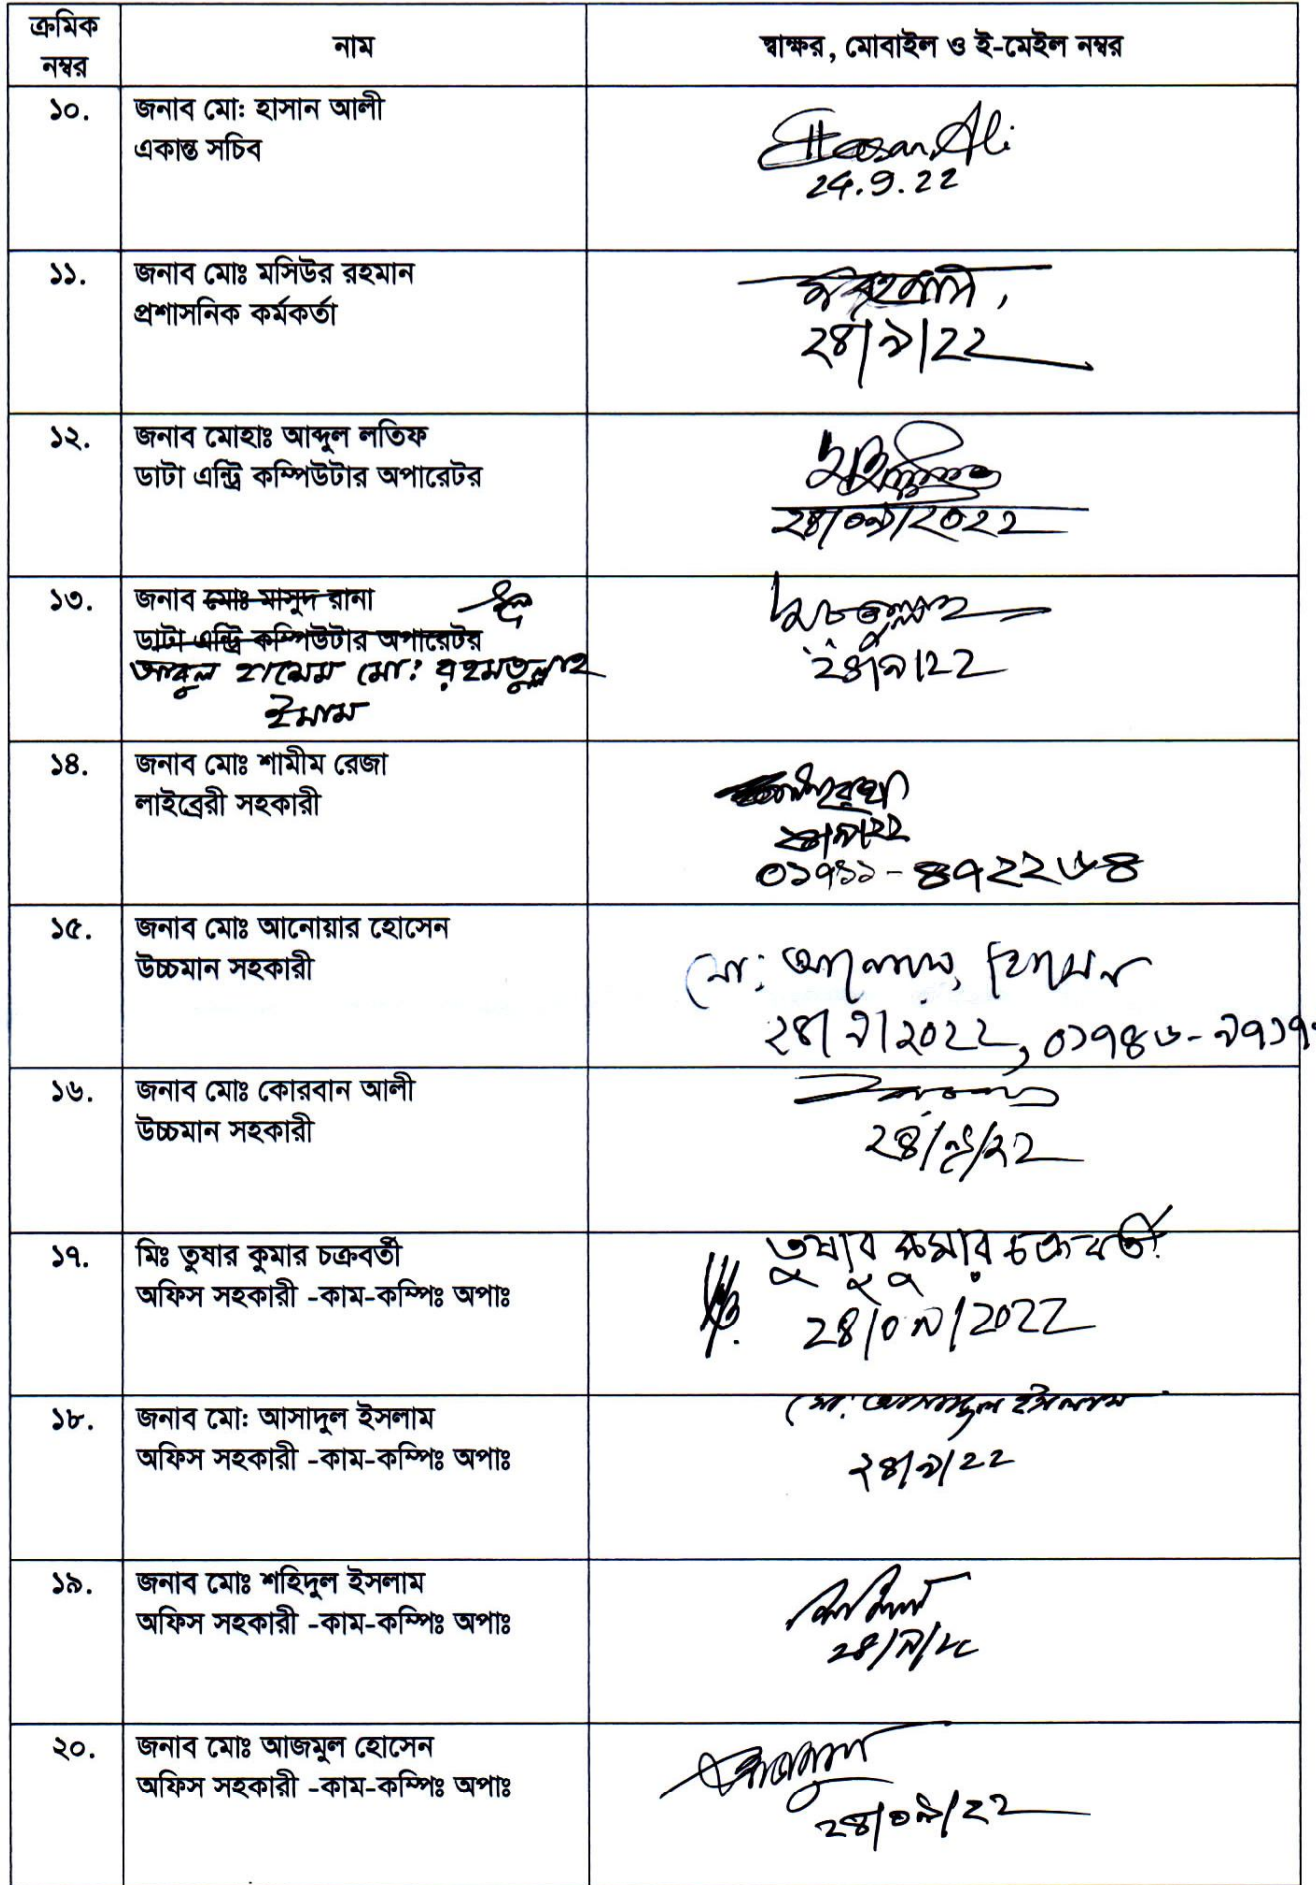 ক্রমিক নম্বর
নাম
স্বাক্ষর, মোবাইল ও ই-মেইল নম্বর
১০.
জনাব মো: হাসান আলী
একান্ত সচিব
Hasan Ali
24.9.22
১১.
জনাব মোঃ মসিউর রহমান
প্রশাসনিক কর্মকর্তা
২৪/৯/২২
১২.
জনাব মোহাঃ আব্দুল লতিফ
ডাটা এন্ট্রি কম্পিউটার অপারেটর
২৪/০৯/২০২২
১৩.
জনাব মোঃ মাসুদ রানা
ডাটা এন্ট্রি কম্পিউটার অপারেটর
আবুল হাসেম মো: রহমতুল্লাহ
ইমাম
২৪/৯/২২
১৪.
জনাব মোঃ শামীম রেজা
লাইব্রেরী সহকারী
১৫.
জনাব মোঃ আনোয়ার হোসেন
উচ্চমান সহকারী
মো: আনোয়ার হোসেন
২৪/৯/২০২২, ০১৭৪৬-৯৭১৭
১৬.
জনাব মোঃ কোরবান আলী
উচ্চমান সহকারী
২৪/৯/২২
১৭.
মিঃ তুষার কুমার চক্রবর্তী
অফিস সহকারী -কাম-কম্পিঃ অপাঃ
তুষার কুমার চক্রবর্তী
২৪/০৯/২০২২
১৮.
জনাব মো: আসাদুল ইসলাম
অফিস সহকারী -কাম-কম্পিঃ অপাঃ
মো: আসাদুল ইসলাম
২৪/৯/২২
১৯.
জনাব মোঃ শহিদুল ইসলাম
অফিস সহকারী -কাম-কম্পিঃ অপাঃ
২৪/৯/২২
২০.
জনাব মোঃ আজমুল হোসেন
অফিস সহকারী -কাম-কম্পিঃ অপাঃ
আজমুল
২৪/০৯/২২